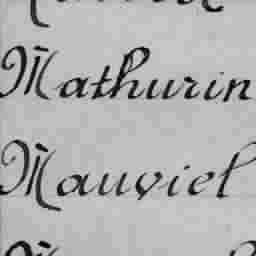 Mathurin
Mauviel